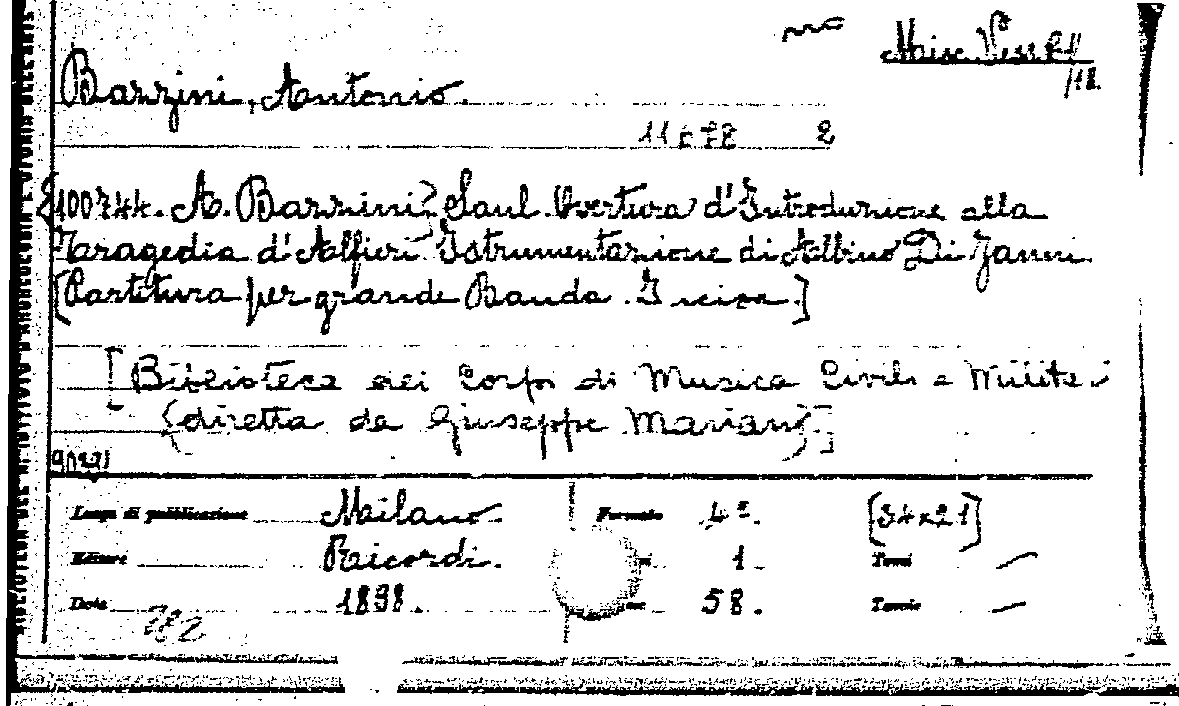 Misc. Vess. R1/
/18.
Bazzini, Antonio.
11678 2
{100744. A. Bazzini} Saul. Overtura d'Introduzione alla
Taragedia d'Alfieri. Istrumentazione di Albino Di Janni.
[Partitura per grande Banda. Incisa.]
[Biblioteca dei Corpi di Musica Civili e Milita i
{diretta da Giuseppe Mariani}]
Luogo di pubblicazione Milano. Formato 4º. [34x21]
Editore Ricordi. 1 Tomi —
Data 1898. 58. Tavole —